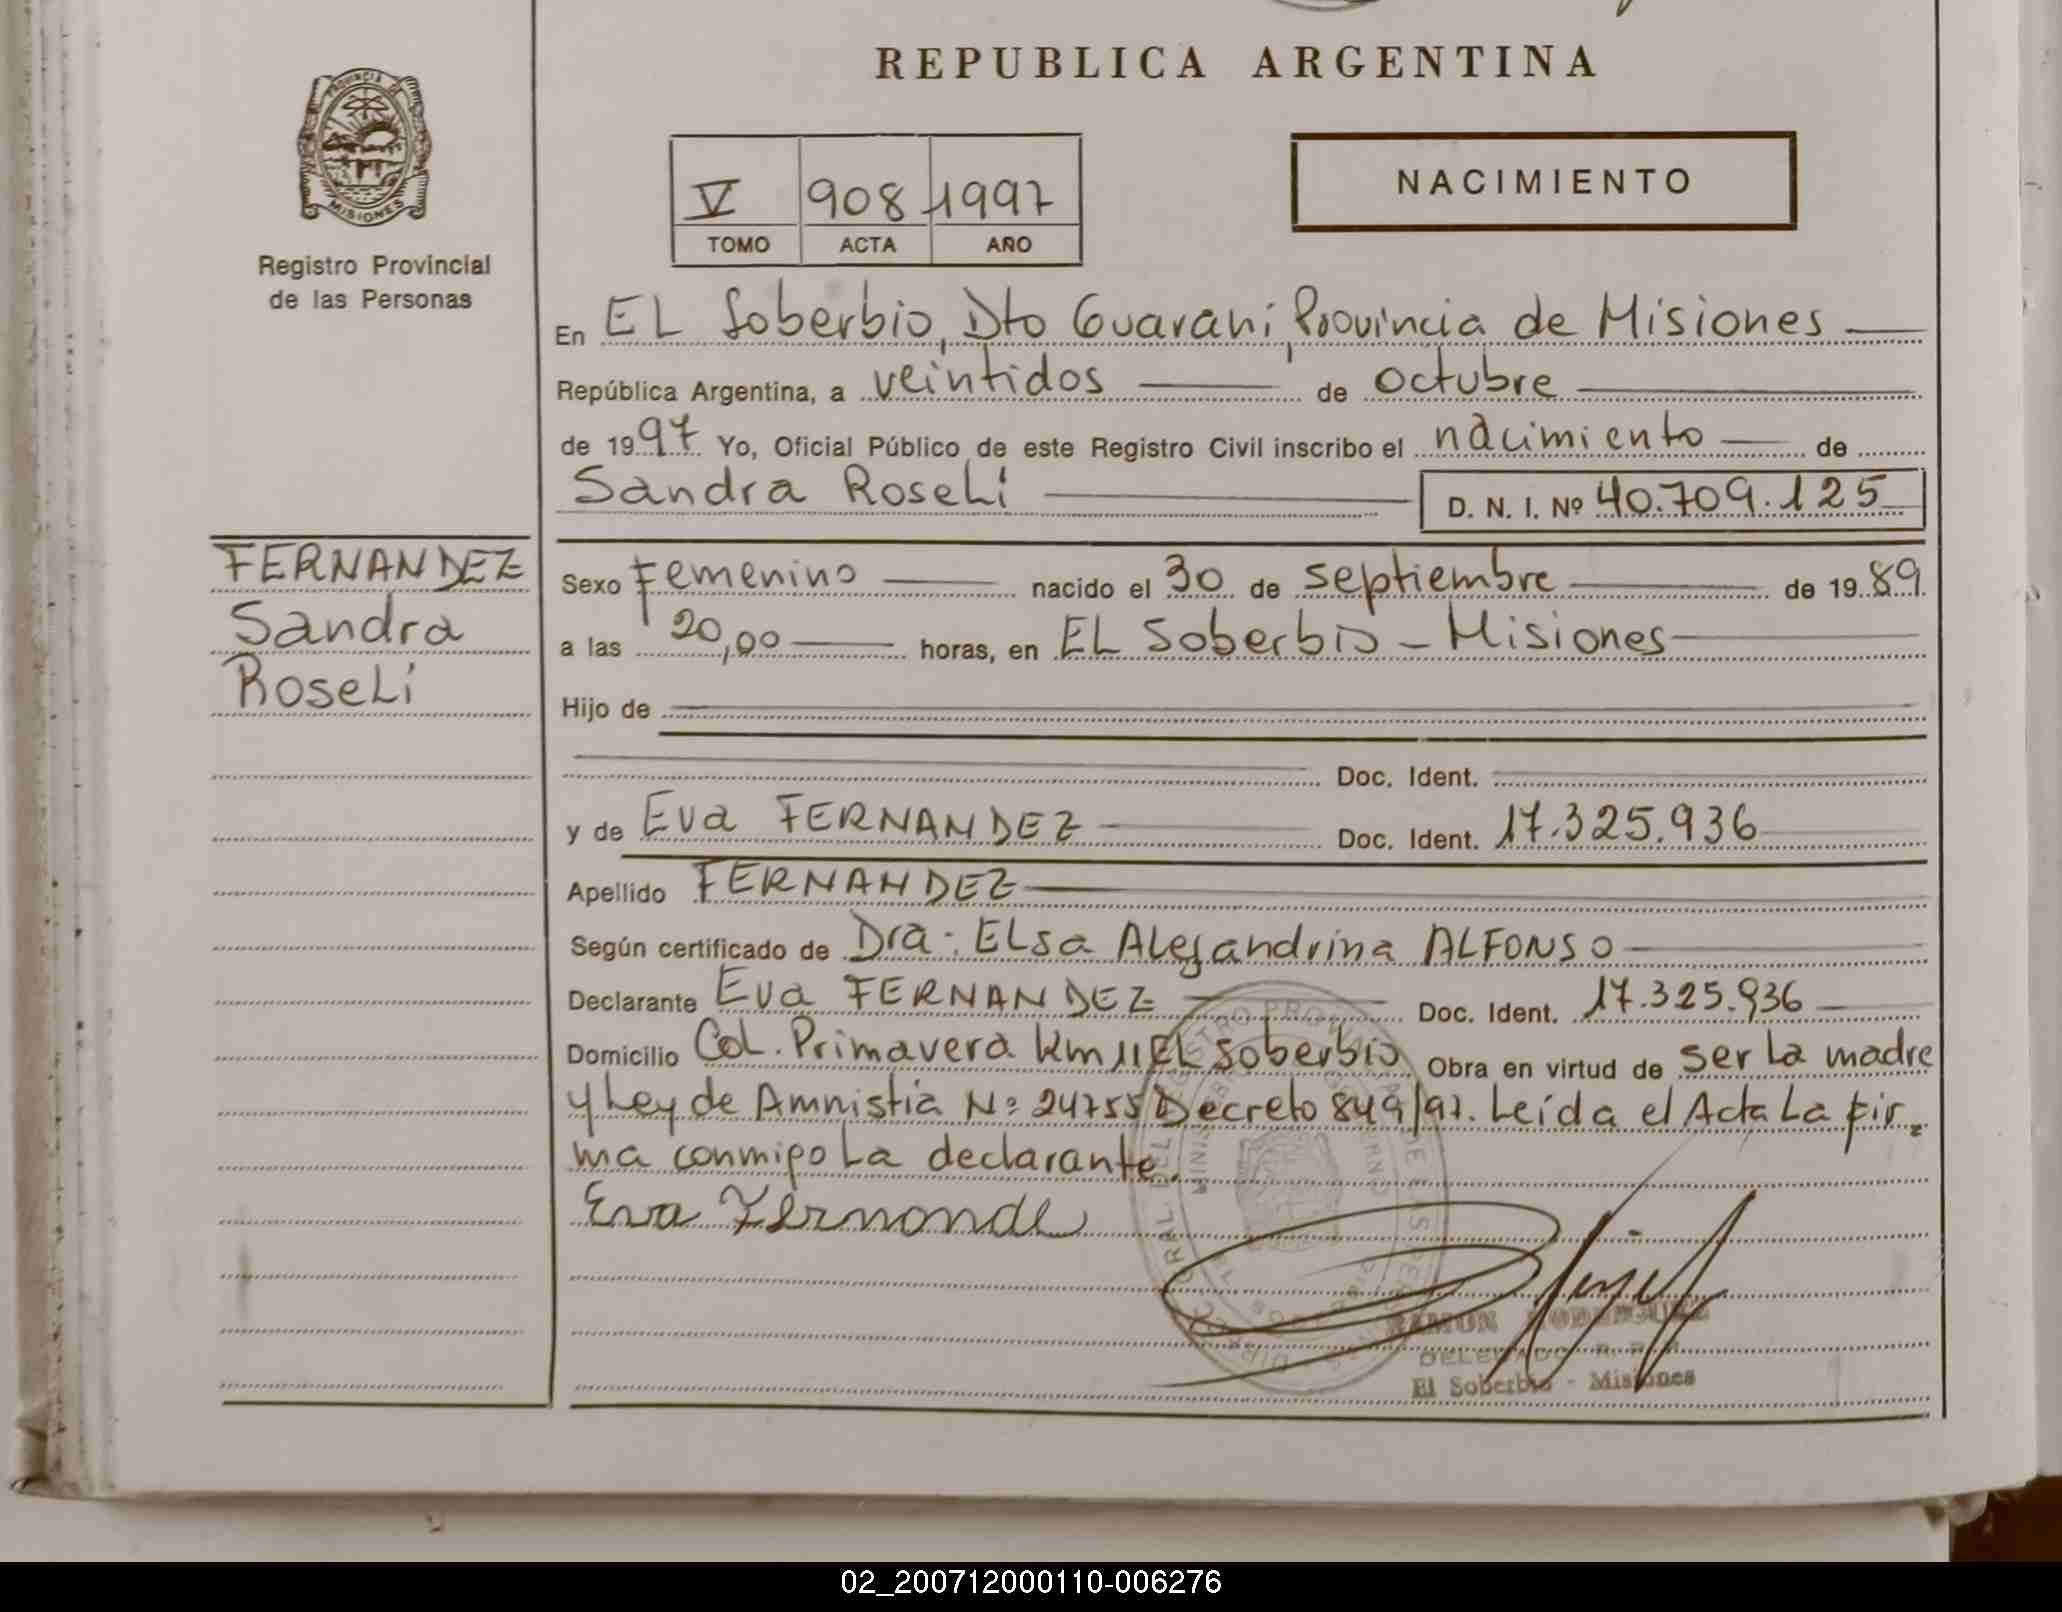 REPUBLICA ARGENTINA
PROVINCIA DE
MISIONES
Registro Provincial
de las Personas
V 908 1997
TOMO ACTA AÑO
NACIMIENTO
En EL Soberbio, Dto Guaraní, Provincia de Misiones
República Argentina, a veintidos de octubre
de 1997 Yo, Oficial Público de este Registro Civil inscribo el nacimiento de
Sandra RoseLi D. N. I. Nº 40.709.125
FERNANDEZ
Sandra
RoseLi
Sexo Femenino nacido el 30 de septiembre de 1989
a las 20,00 horas, en EL Soberbio - Misiones
Hijo de
Doc. Ident.
y de Eva FERNANDEZ Doc. Ident. 17.325.936
Apellido FERNANDEZ
Según certificado de Dra. ELsa Alejandrina ALFONSO
Declarante Eva FERNANDEZ Doc. Ident. 17.325.936
Domicilio Col. Primavera Km 11 EL Soberbio Obra en virtud de ser La madre
y Ley de Amnistia Nº 24755 Decreto 849/97. Leída el Acta La fir
ma conmigo La declarante.
Eva Fernonde
RAMON RODRIGUEZ
DELEGADO R. P. P.
El Soberbio - Misiones
02_200712000110-006276